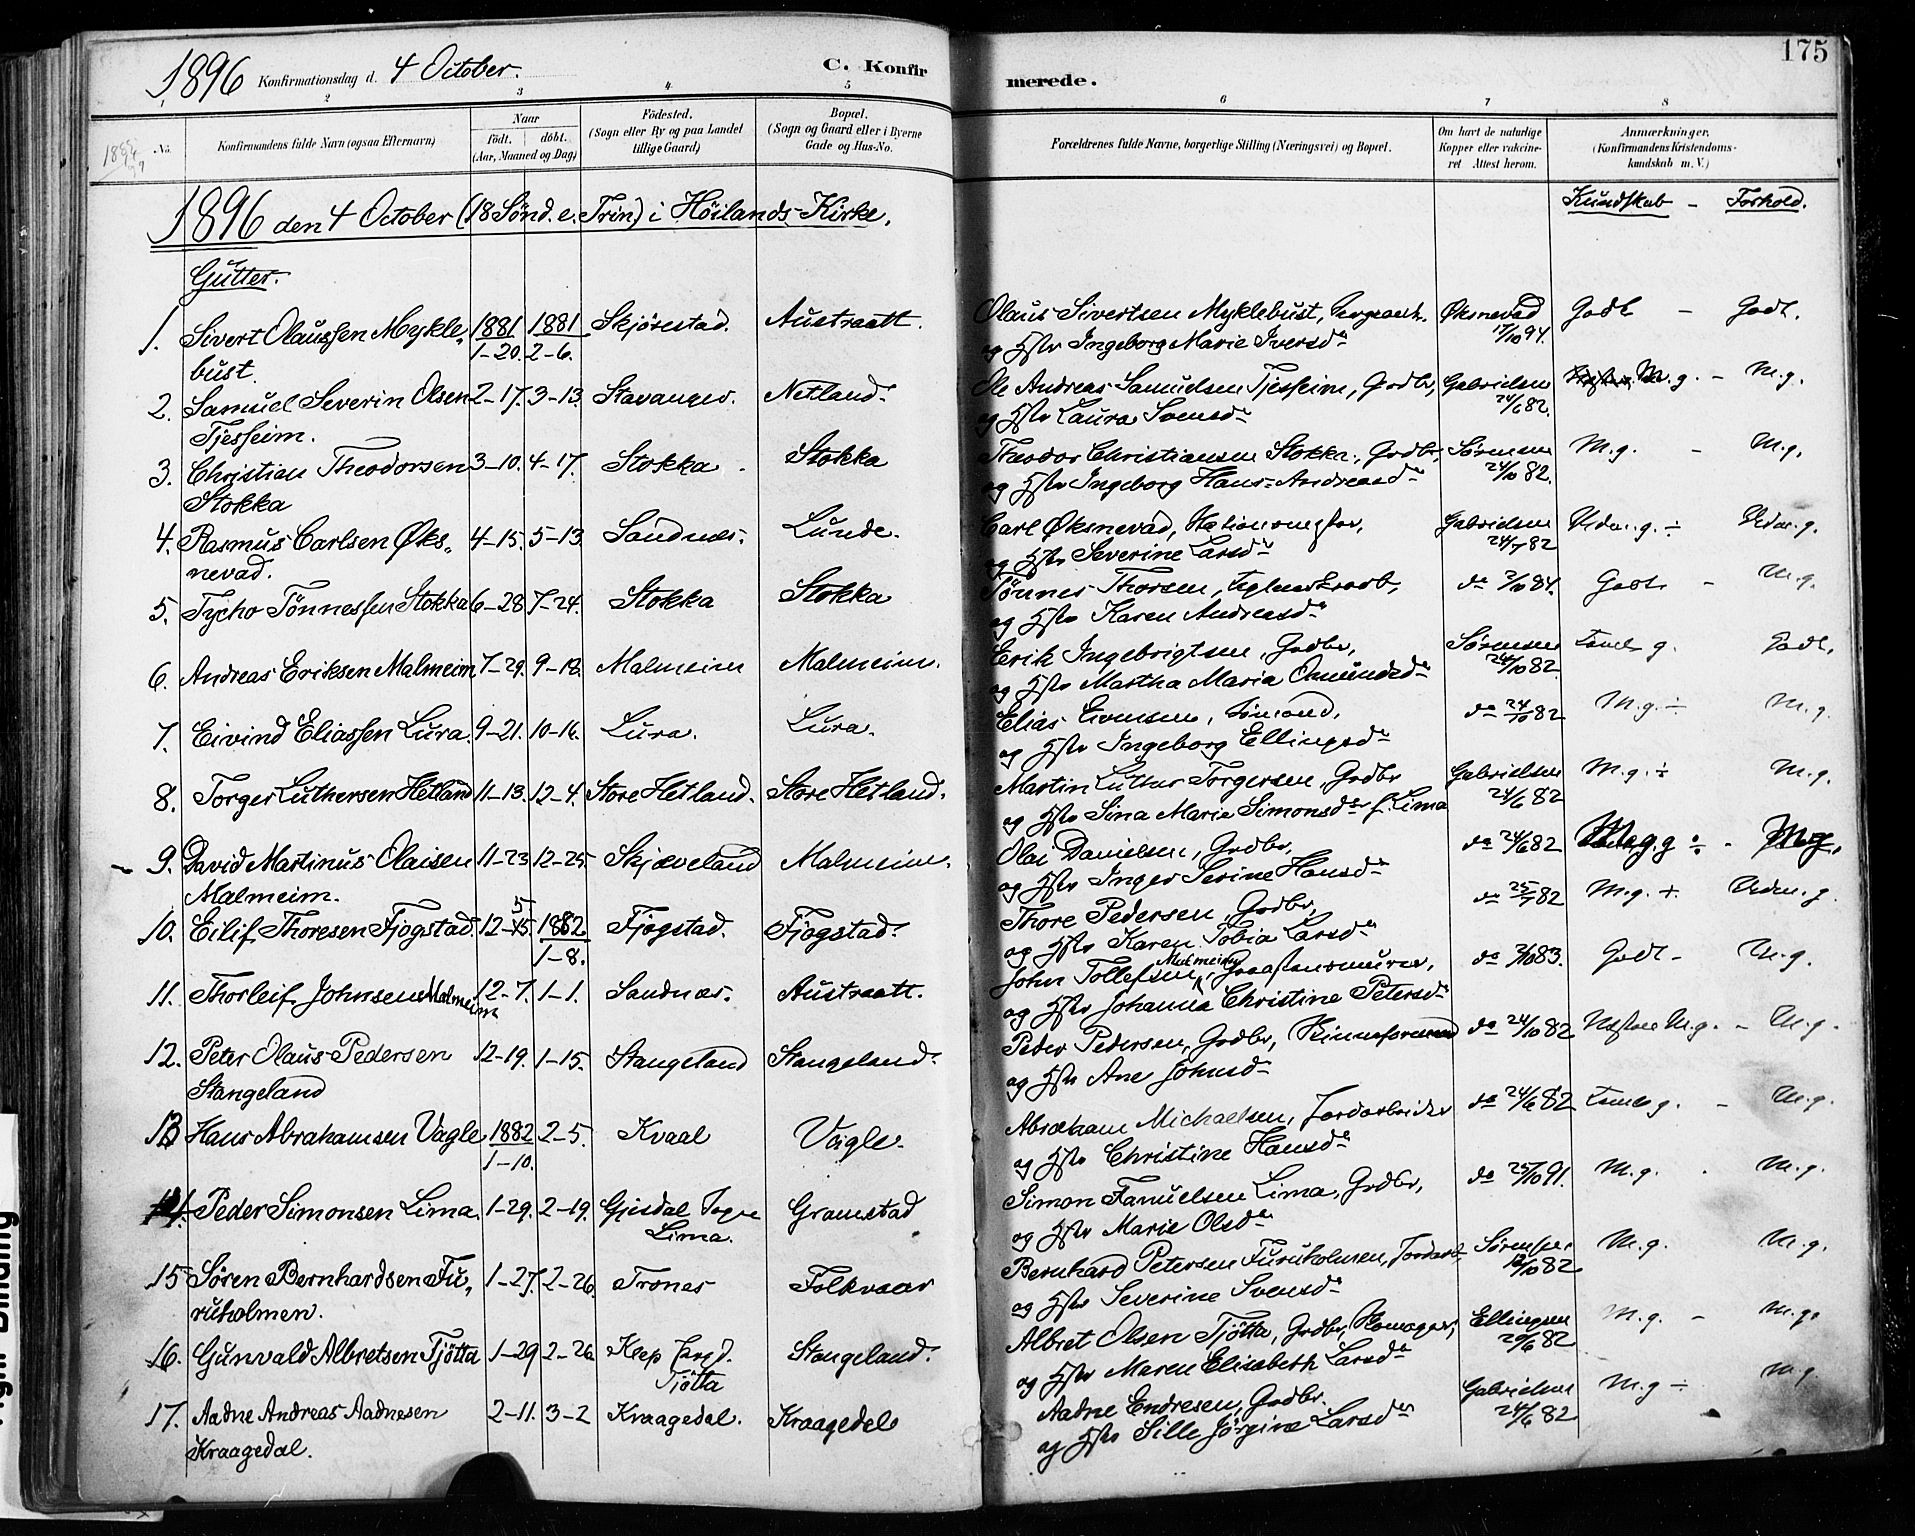 175
1896 Konfirmationsdag d. 4 October. C. Konfirmerede.
2 3 4 5 6 7 8
No. Konfirmandens fulde Navn (ogsaa Efternavn) Naar født, døbt. (Aar, Maaned og Dag) Födested. (Sogn eller By og paa Landet tillige Gaard) Bopæl. (Sogn og Gaard eller i Byerne Gade og Hus-No. Forældrenes fulde Navne, borgerlige Stilling (Næringsvei) og Bopæl. Om havt de naturlige Kopper eller vakcineret Attest herom. Anmærkninger. (Konfirmandens Kristendomskundskab m. V.)
1896 den 4 October (18 Sønd. e. Trin) i Høilands Kirke. Kundskab - Forhold.
Gutter.
1. Sivert Olaussen Mykle- 1881 1881 Skjørestad. Austraatt. Olaus Sivertsen Myklebust, Øksnevad Godt - Godt.
bust. 1-20. 2-6. og Hstr Ingeborg Marie Iversd. 17/10 94.
2. Samuel Severin Olsen 2-17. 3-13. Stavanger. Netland. Ole Andreas Samuelsen Tjesseim, Grdbr, Gabrielsen M.g. - M.g.
Tjesseim. og Hstr Laura Svensd. 24/6 82.
3. Christian Theodorsen 3-10. 4-17. Stokka. Stokka Theodor Christiansen Stokka, Grdbr, Sørensen M.g. - M.g.
Stokka og Hstr Ingeborg Hans-Andreasd. 24/10 82.
4. Rasmus Carlsen Øks- 4-15. 5-13. Sandnes. Lunde. Carl Øksnevad, Gabrielsen Udm.g. ÷ Udm.g.
nevad. og Hstr Severine Larsd. 24/7 82
5. Tycho Tønnessen Stokka 6-28. 7-24. Stokka Stokka Tønnes Thorsen, do 84. Godt - M.g.
og Hstr Karen Andreasd.
6. Andreas Eriksen Malmeim 7-29. 9-18. Malmeim Malmeim. Erik Ingebrigtsen, Grdbr, Sørensen g. Godt.
og Hstr Martha Maria Omundsd. 24/10 82.
7. Eivind Eliassen Lura. 9-21. 10-16. Lura. Lura. Elias do 24/10 82 M.g. ÷ M.g.
og Hstr Ingeborg Ellingsd.
8. Torger Luthersen Hetland 11-13. 12-4. Store Hetland. Store Hetland. Martin Luther Torgersen, Grdbr Gabrielsen M.g. ÷ M.g.
og Hstr Sina Marie Simonsd. f. Lima 24/6 82
9. David Martinus Olaisen 11-23 12-25. Skjæveland Malmeim. Olai Danielsen, Grdbr, do 24/6 82 g ÷ M.g.
Malmeim. og Hstr Inger Serine Hansd.
10. Eilif Thoresen Fjogstad. 12-5 1882 Fjogstad. Fjogstad. Thore Pedersen, Grdbr, do 25/7 82 M.g. + Udm.g.
1-8. og Hstr Karen Tobia Larsd.
11. Thorleif Johnsen Malmeim 12-7. 1-1. Sandnes. Austraatt. John Tollefsen Malmeim, do 83. Godt - M.g.
og Hstr Johanna Christine Petersd.
12. Peter Olaus Pedersen 12-19. 1-15. Stangeland Stangeland. Peder Pedersen, Grdbr, do 24/10 82 Næsten M.g. - M.g.
Stangeland og Hstr Ane Johnsd.
13 Hans Abrahamsen Vagle 1882 2-5. Kvaal Vagle. Abraham Michaelsen, Jordarbeider do 24/6 82 g. - M.g.
1-10. og Hstr Christine Hansd.
14. Peder Simonsen Lima. 1-29. 2-19. Gjesdal Sogn Gramstad Simon Samuelsen Lima, Grdbr, do 25/10 91. M.g. M.g.
Lima. og Hstr Marie Olsd.
15 Søren Bernhardsen Fu- 1-27. 2-26. Trones Folkvaar Bernhard Petersen Furuholmen, Sørensen M.g. M.g.
ruholmen. og Hstr Severine Svensd. 12/10 82
16. Gunvald Albretsen Tjøtta 1-29 2-26 Klep Stangeland. Albret Olsen Tjøtta, Grdbr, Ellingsen M.g. - M.g.
Tjøtta og Hstr Maren Elisabeth Larsd. 20/6 82
17. Aadne Andreas Aadnesen 2-11. 3-2 Kraagedal. Kraagedal Aadne Endresen, Grdbr. Gabrielsen M.g ÷ M.g
Kraagedal. og Hstr Sille Jørgine Larsd. 24/6 82